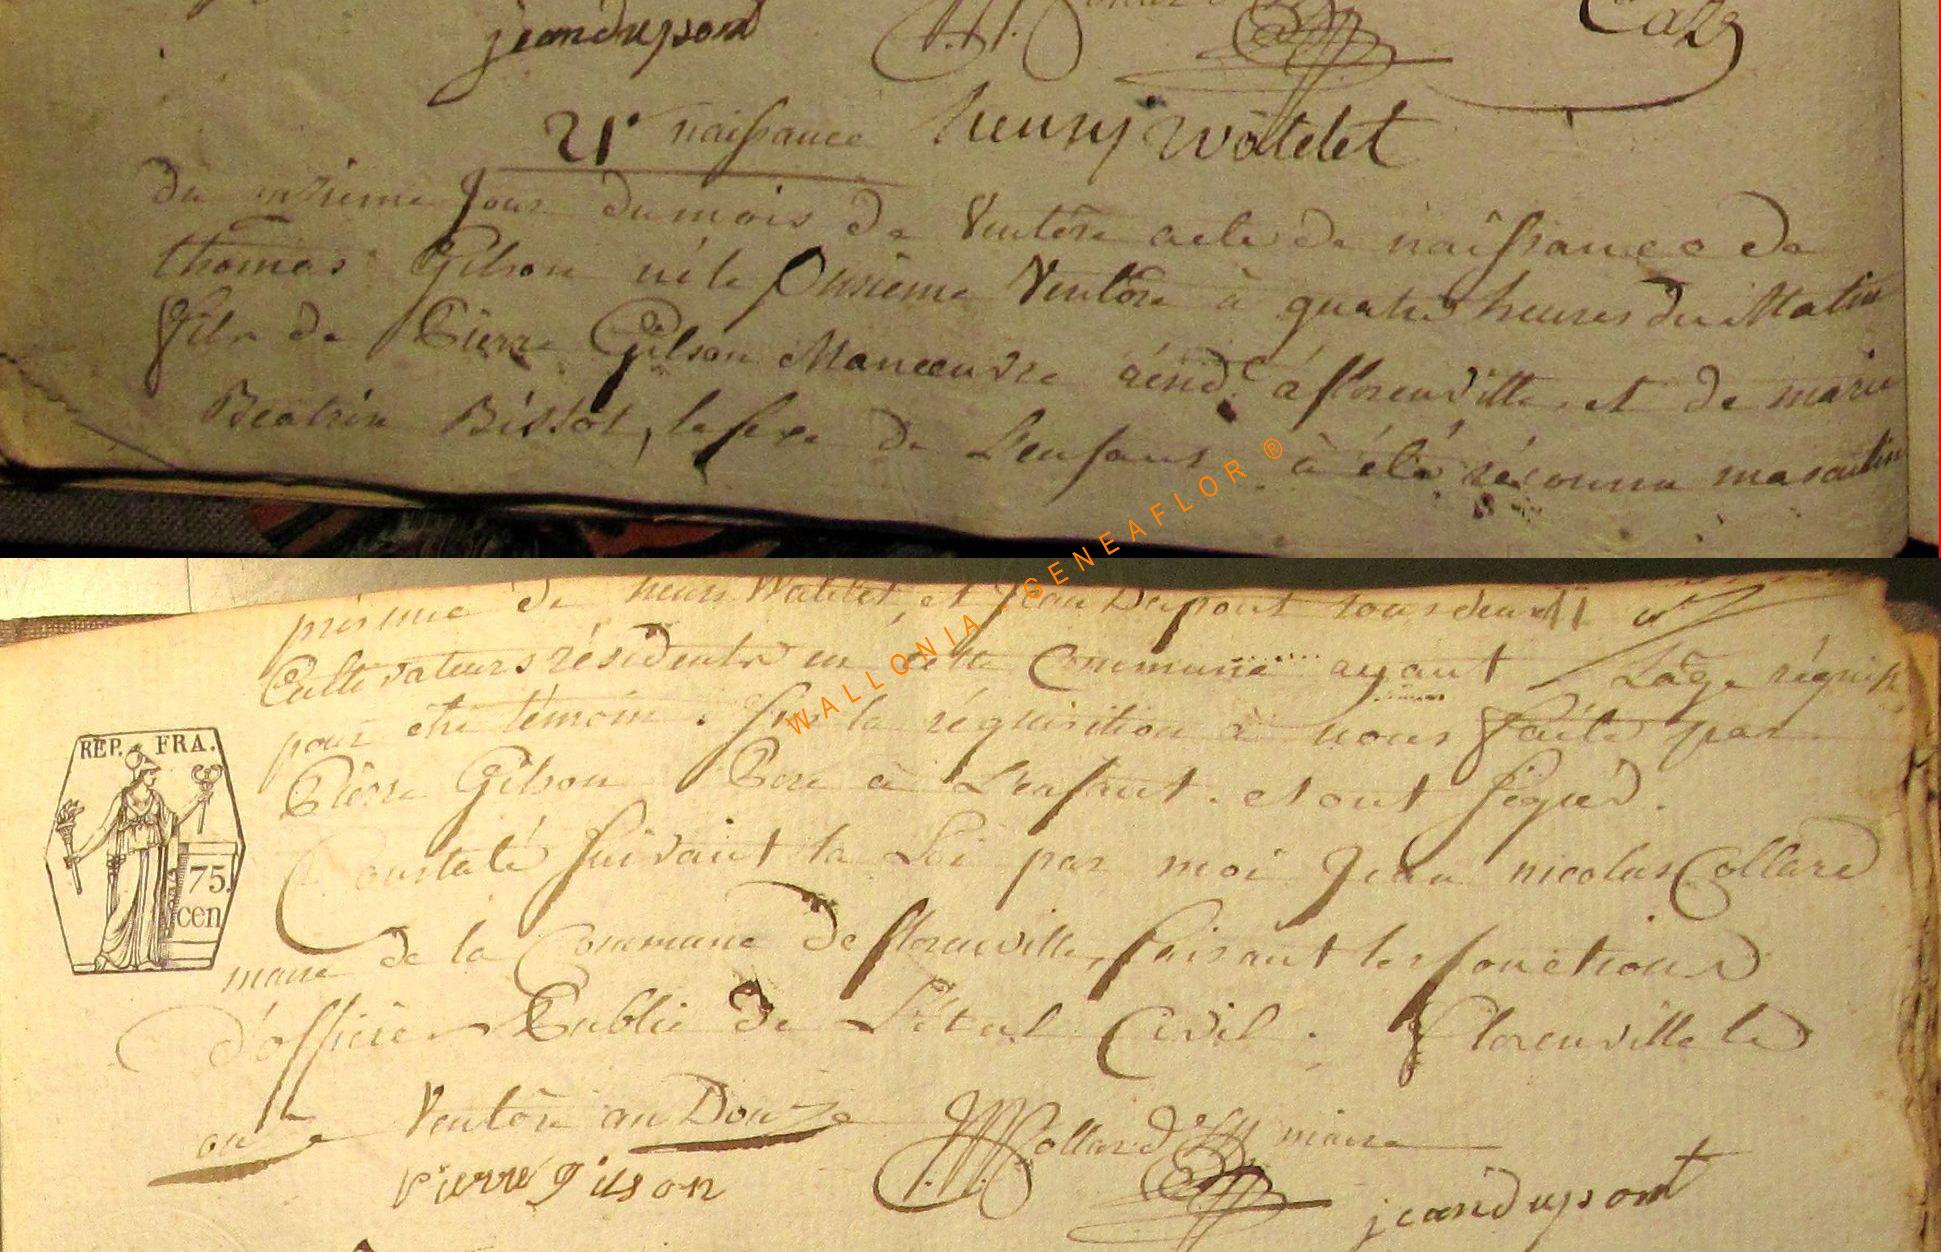 jeandupont
Cats
21e naissance henry Watelet
du onsieme Jour du mois de Ventôse acte de naissance de
thomas Gilson né le Onsieme Ventôse à quatre heures du Matin
Fils de Pierre Gilson Manoeuvre résid.t à florenville, et de marie
Beatrix Bissot, le sexe de L'enfant à été réconnu masculin
présence de henri Watelet, et Jean Dupont tous deux
Cultivateurs résidents en cette Commune ayant L'âge réquis
pour être témoin. Sur la réquisition à nous Faite par
Pierre Gilson Pere à L'enfant. et ont signéd.
Constaté suivant la Loi par moi Jean nicolas Collard
maire de la Commune de florenville, faisant les fonctions
d'officier Public de L'état Civil. Florenville le
onze Ventôse an Douze JNCollard maire
pierre gilson
jeandupont
REP. FRA.
75.
cen
WALLONIA GENEAFLOR ®